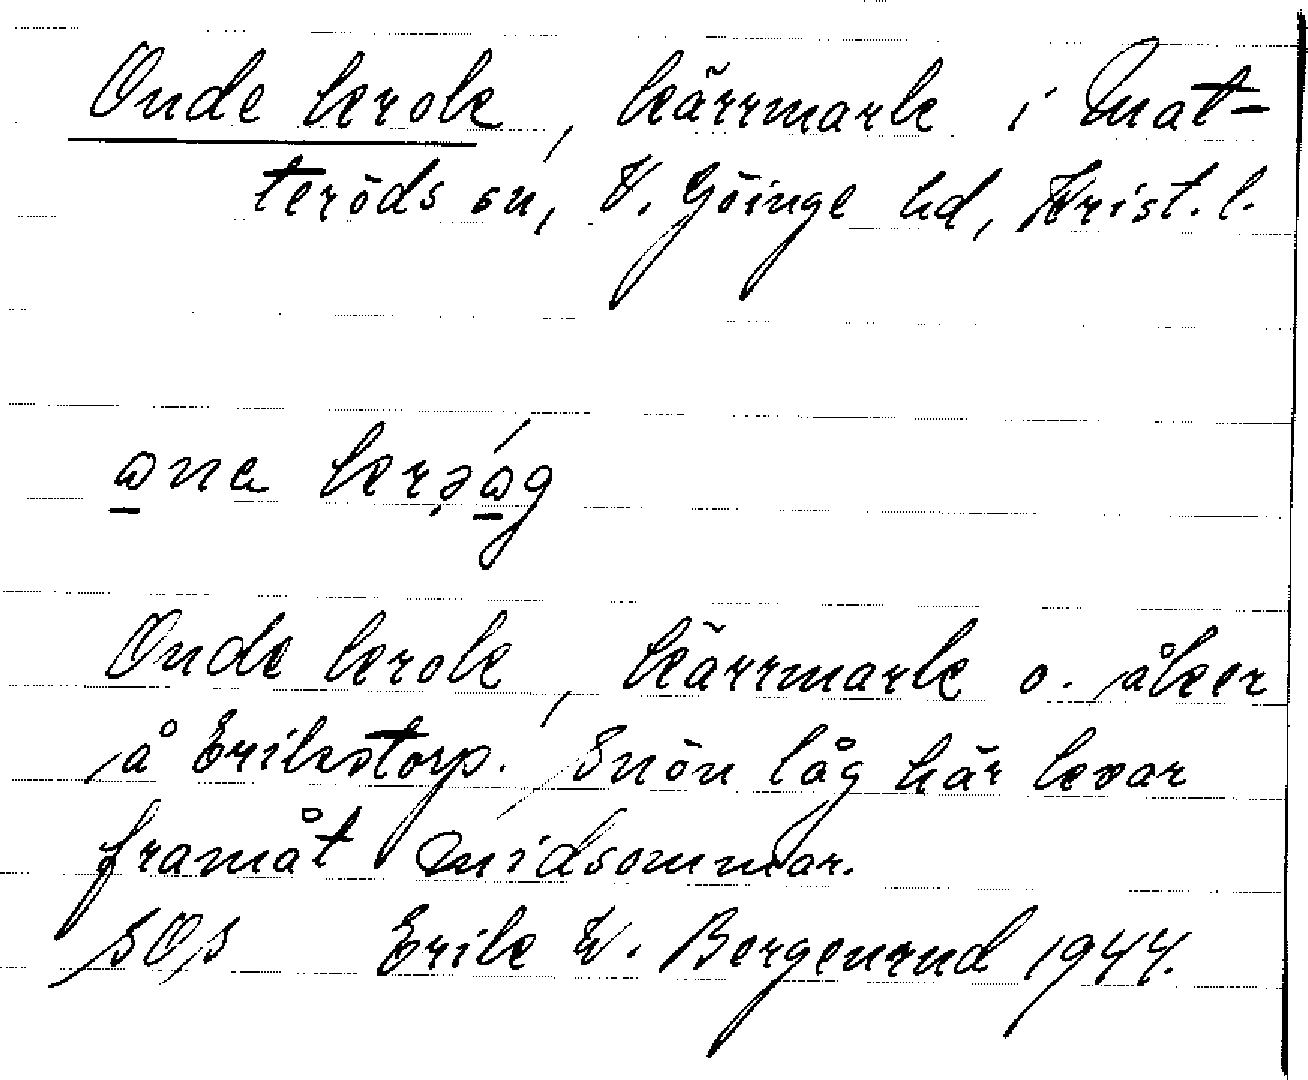 Onde krok, kärrmark i Mat-
teröds sn, V. Göinge hd, Krist. l.
Onde krok, kärrmark o. åker
å Erikstorp. Snön låg här kvar
framåt midsommar.
SOS Erik W. Bergenrud 1944.